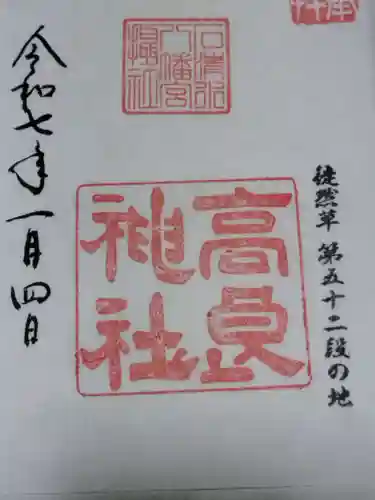 奉拝
徒然草 第五十二段の地
石清水
八幡宮
摂社
高良
神社
令和七年一月四日